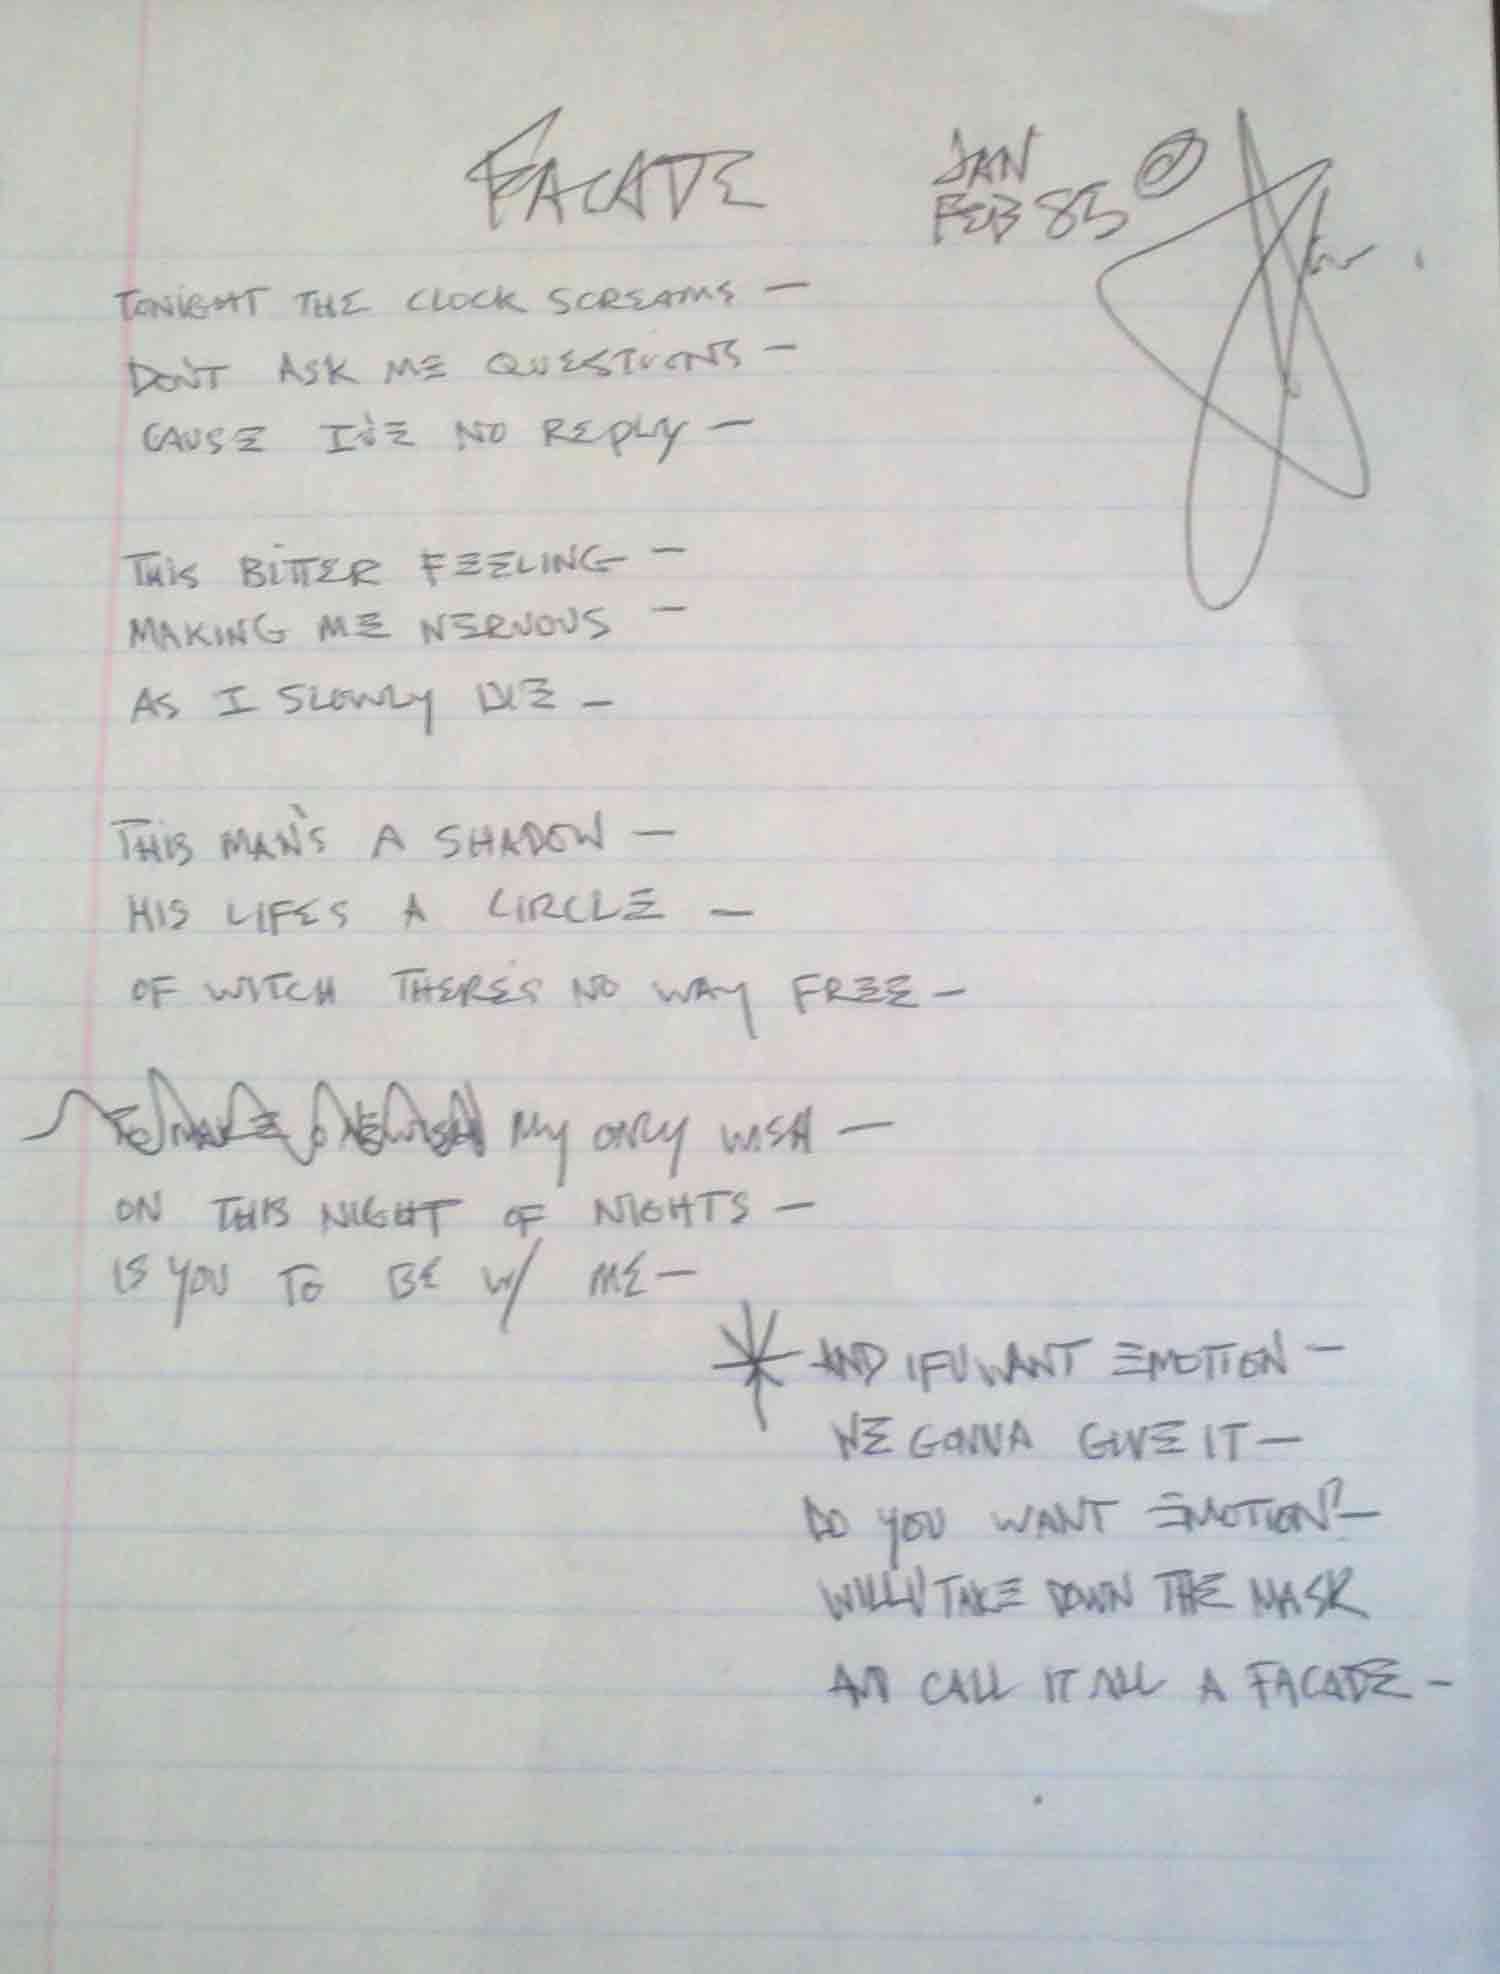 FACADE
JAN
FEB 85 ©
TONIGHT THE CLOCK SCREAMS –
DON'T ASK ME QUESTIONS –
CAUSE I'VE NO REPLY –
THIS BITTER FEELING –
MAKING ME NERVOUS –
AS I SLOWLY DIE –
THIS MAN'S A SHADOW –
HIS LIFES A CIRCLE –
OF WITCH THERE'S NO WAY FREE –
MY ONLY WISH –
ON THIS NIGHT OF NIGHTS –
IS YOU TO BE W/ ME –
* AND IF U WANT EMOTION –
WE GONNA GIVE IT –
DO YOU WANT EMOTION? –
WILL U TAKE DOWN THE MASK
AND CALL IT ALL A FACADE –